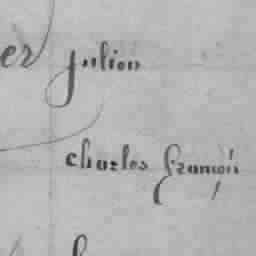 er julien
charles françois